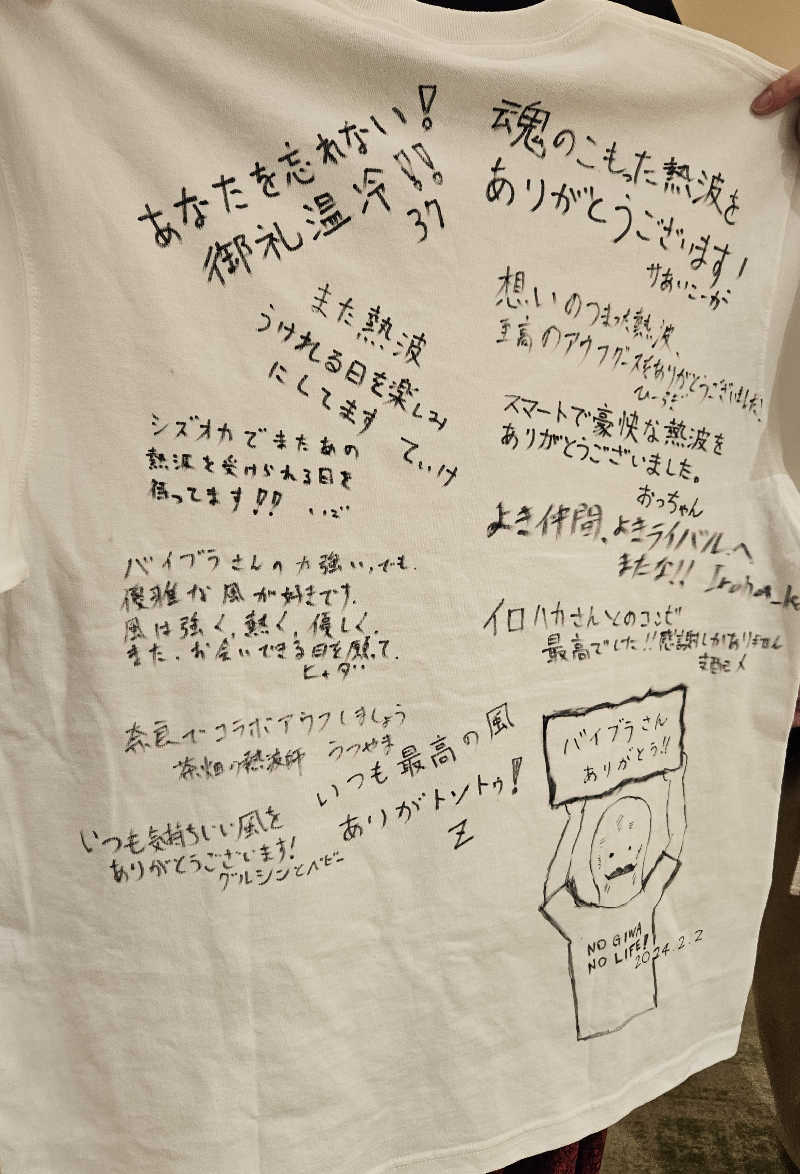 あなたを忘れない!
御礼温冷!!
37
また熱波
うけれる日を楽しみ
にしてます
てぃけ
シズオカでまたあの
熱波を受けられる日を
待ってます!!
いご
バイブラさんの力強い、でも、
優雅な風が好きです。
風は強く、熱く、優しく。
また、お会いできる日を願って。
ヒャダ
奈良でコラボアウフしましょう
茶畑の熱波師 うつやま
いつも最高の風
ありがトントゥ!
Z
いつも気持ちいい風を
ありがとうございます!
グルシンとベビー
魂のこもった熱波を
ありがとうございます!
サあいこーが
想いのつまった熱波、
至高のアウフグースをありがとうございました!
スマートで豪快な熱波を
ありがとうございました。
おっちゃん
よき仲間、よきライバルへ
またな!!
イロハカさんとのコンビ
最高でした!!感謝しかありません
バイブラさん
ありがとう!!
NO GIWA
NO LIFE!
2024.2.2